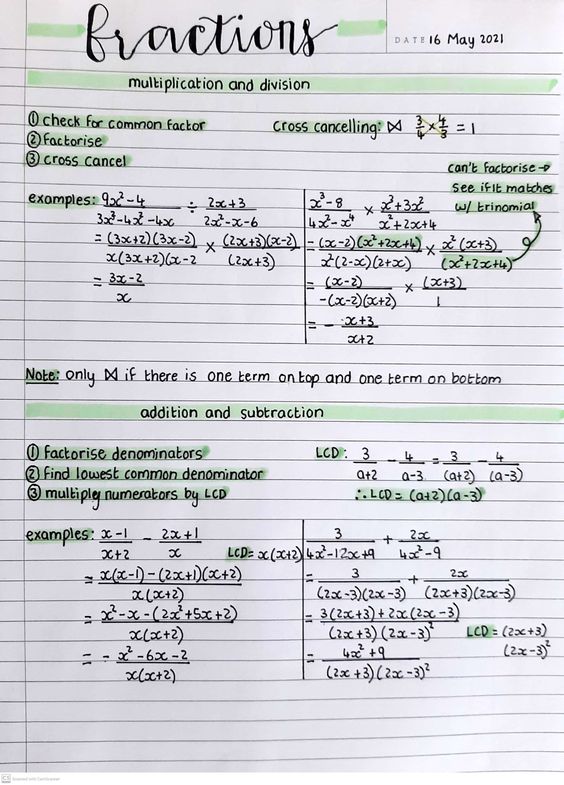 fractions
DATE 16 May 2021
multiplication and division
① check for common factor
② factorise
③ cross cancel
cross cancelling: ⋈ 3/4 × 4/3 = 1
can't factorise →
see if it matches
w/ trinomial
examples: (9x²-4)/(3x³-4x²-4x) ÷ (2x+3)/(2x²-x-6)
= (3x+2)(3x-2)/x(3x+2)(x-2 × (2x+3)(x-2)/(2x+3)
= (3x-2)/x
(x³-8)/(4x²-x⁴) × (x³+3x²)/(x²+2x+4)
= (x-2)(x²+2x+4)/x²(2-x)(2+x) × x²(x+3)/(x²+2x+4)
= (x-2)/-(x-2)(x+2) × (x+3)/1
= - (x+3)/(x+2)
Note: only ⋈ if there is one term on top and one term on bottom
addition and subtraction
① factorise denominators
② find lowest common denominator
③ multiply numerators by LCD
LCD: 3/(a+2) - 4/(a-3) = 3/(a+2) - 4/(a-3)
∴ LCD = (a+2)(a-3)
examples: (x-1)/(x+2) - (2x+1)/x
LCD= x(x+2)
= x(x-1)-(2x+1)(x+2)/x(x+2)
= x²-x-(2x²+5x+2)/x(x+2)
= -x²-6x-2/x(x+2)
3/(4x²-12x+9) + 2x/(4x²-9)
= 3/(2x-3)(2x-3) + 2x/(2x+3)(2x-3)
= 3(2x+3)+2x(2x-3)/(2x+3)(2x-3)²
LCD = (2x+3)
(2x-3)²
= 4x²+9/(2x+3)(2x-3)²
CS Scanned with CamScanner